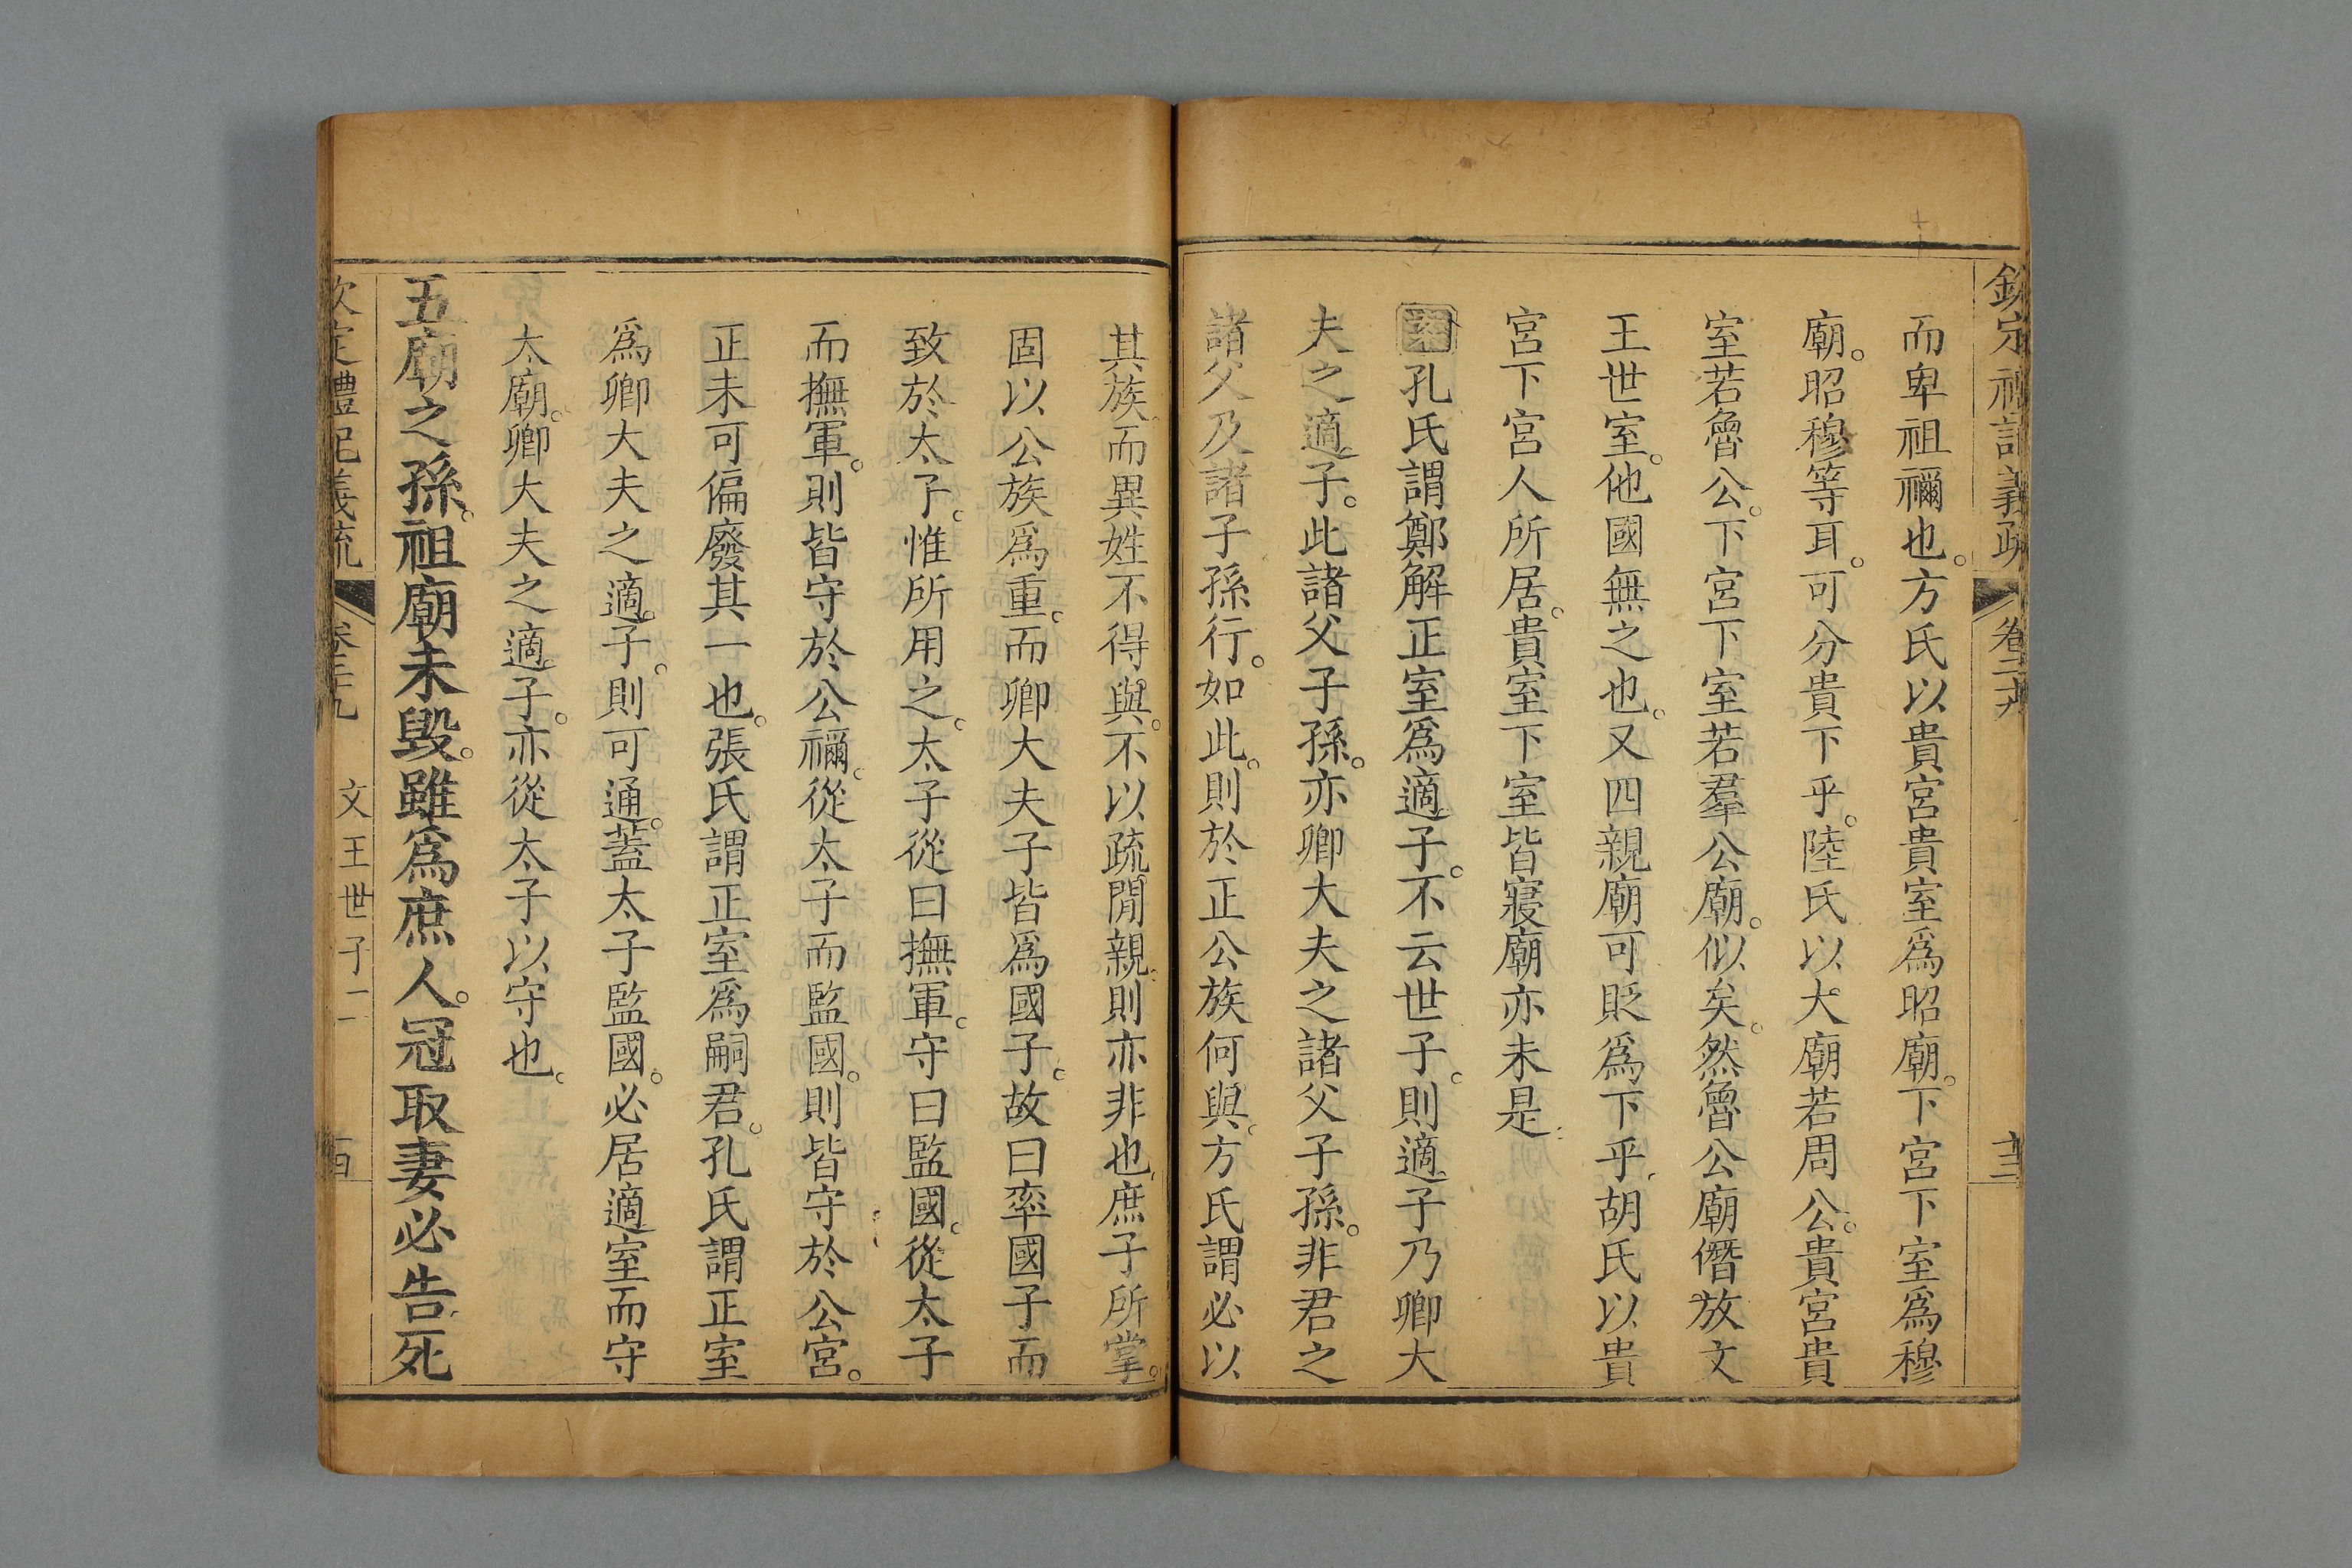 欽定禮記義疏 卷二十九
而卑祖禰也。方氏以貴宮貴室爲昭廟。下宮下室爲穆
廟。昭穆等耳。可分貴下乎。陸氏以大廟若周公。貴宮貴
室若魯公。下宮下室若羣公廟。似矣。然魯公廟僭放文
王世室。他國無之也。又四親廟可貶爲下乎。胡氏以貴
宮下宮人所居。貴室下室皆寢廟亦未是
案孔氏謂鄭解正室爲適子。不云世子。則適子乃卿大
夫之適子。此諸父子孫。亦卿大夫之諸父子孫。非君之
諸父及諸子孫行。如此。則於正公族何與。方氏謂必以
其族而異姓不得與。不以疏閒親。則亦非也。庶子所掌。
固以公族爲重。而卿大夫子皆爲國子。故曰率國子而
致於太子。惟所用之。太子從曰撫軍。守曰監國。從太子
而撫軍。則皆守於公禰。從太子而監國。則皆守於公宮。
正未可偏廢其一也。張氏謂正室爲嗣君。孔氏謂正室
爲卿大夫之適子。則可通。蓋太子監國。必居適室而守
太廟。卿大夫之適子。亦從太子以守也。
五廟之孫。祖廟未毀。雖爲庶人。冠取妻必告死
欽定禮記義疏 卷二十九 文王世子二